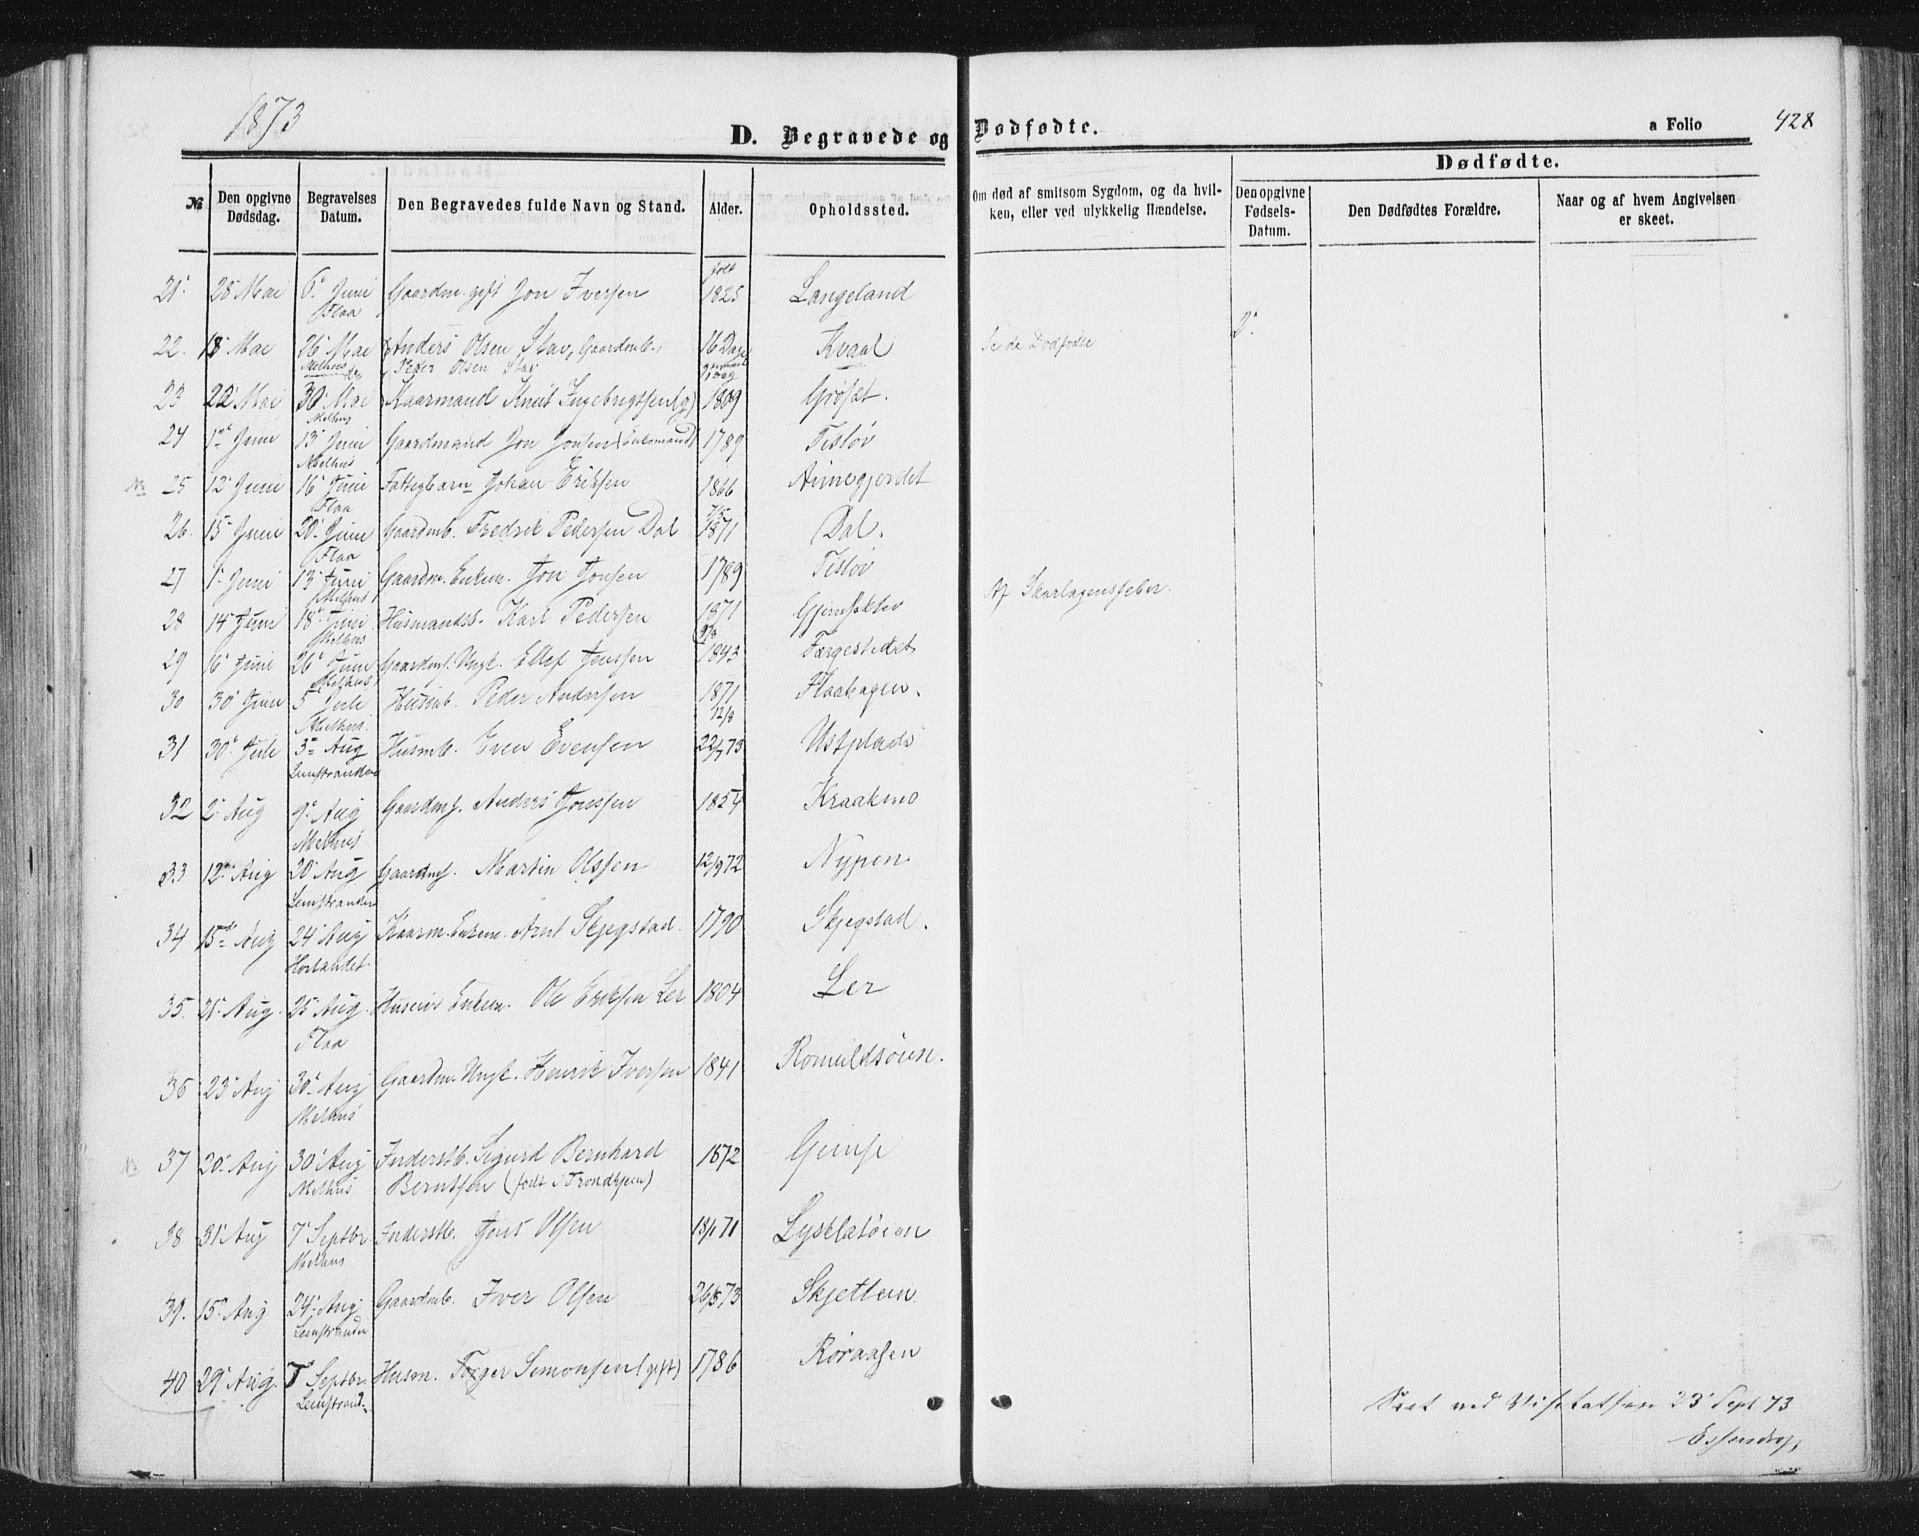 1873
D. Begravede og Dødfødte.
a Folio 428
Dødfødte.
№ Den opgivne Dødsdag. Begravelses Datum. Den Begravedes fulde Navn og Stand. Alder. Opholdssted. Om død af smitsom Sygdom, og da hvilken, eller ved ulykkelig Hændelse. Den opgivne Fødsels-Datum. Den Dødfødtes Forældre. Naar og af hvem Angivelsen er skeet.
født
21. 28 Mai 6 Juni Gaardm. gift Jon Iversen 1825 Langeland
Flaa
22. 18 Mai 26 Mai Anders Olsen Stav, Gaardmb. 16 Dage Kvaal Se de Dødfødte
Melhus Peder Olsen Stav
23 22 Mai 30 Mai Kaarmand Knut Ingebrigtsen (g) 1809 Grøset.
Melhus
24 1 Juni 13 Juni Gaardmand Jon Jonsen (Enkemand) 1789 Tisløv
Melhus
25 12 Juni 16 Juni Fattigbarn Johan Eriksen 1866
Flaa
26. 15 Juni 20 Juni Gaardmb. Fredrik Pedersen Dal 1871 Dal.
Flaa
27 1 Juni 13 Juni Gaardm. Enkem. Jon Jonsen 1789 Tisløv
Melhus
28 14 Juni 18 Juni Husmandss. Karl Pedersen 1871 Af Skarlagensfeber.
Melhus
29 16 Juni 26 Juni Gaardms. Ungk. Ellef Jensen 1843 Færgestedet
Melhus
30 30 Juni 5 Juli Husmb. Peder Andersen 1871 Flaahagen.
Melhus 12/9
31 30 Juli 3 Aug Husmb. Even Evensen 22/7 73 Ustplads
Leinstranden
32 2 Aug 9 Aug Gaardms. Anders Jonssen 1854 Kraakmo
Melhus
33 12 Aug 20 Aug Gaardms. Martin Olssen 12/9 72 Nypen
Leinstranden
34 15 Aug 24 Aug Kaarm. Enkem. Arnt Skjegstad. 1790 Skjegstad.
Horlandet
35. 21 Aug. 25 Aug. Enkem. Ole Eriksen Ler 1804 Ler
Flaa
36 23 Aug 30 Aug Gaardm. Ungk. Henrik Iversen 1841
Melhus
37 20 Aug 30 Aug Inderstb. Sigurd Bernhard 1872 Gimse
Melhus Berntsen (født i Trondhjem)
38 31 Aug 7 Septbr Inderstb. Jens Olsen Lysklatøien
Melhus
39. 15 Aug 24 Aug Gaardmb. Iver Olsen Skjetlein
Leinstranden
40 29 Aug. 7 Septbr. Husm. Torger Simonsen (gift) 1786 Røraasen
Leinstrand.
Seet ved Visitatsen 23 Sept 73
Essendrop